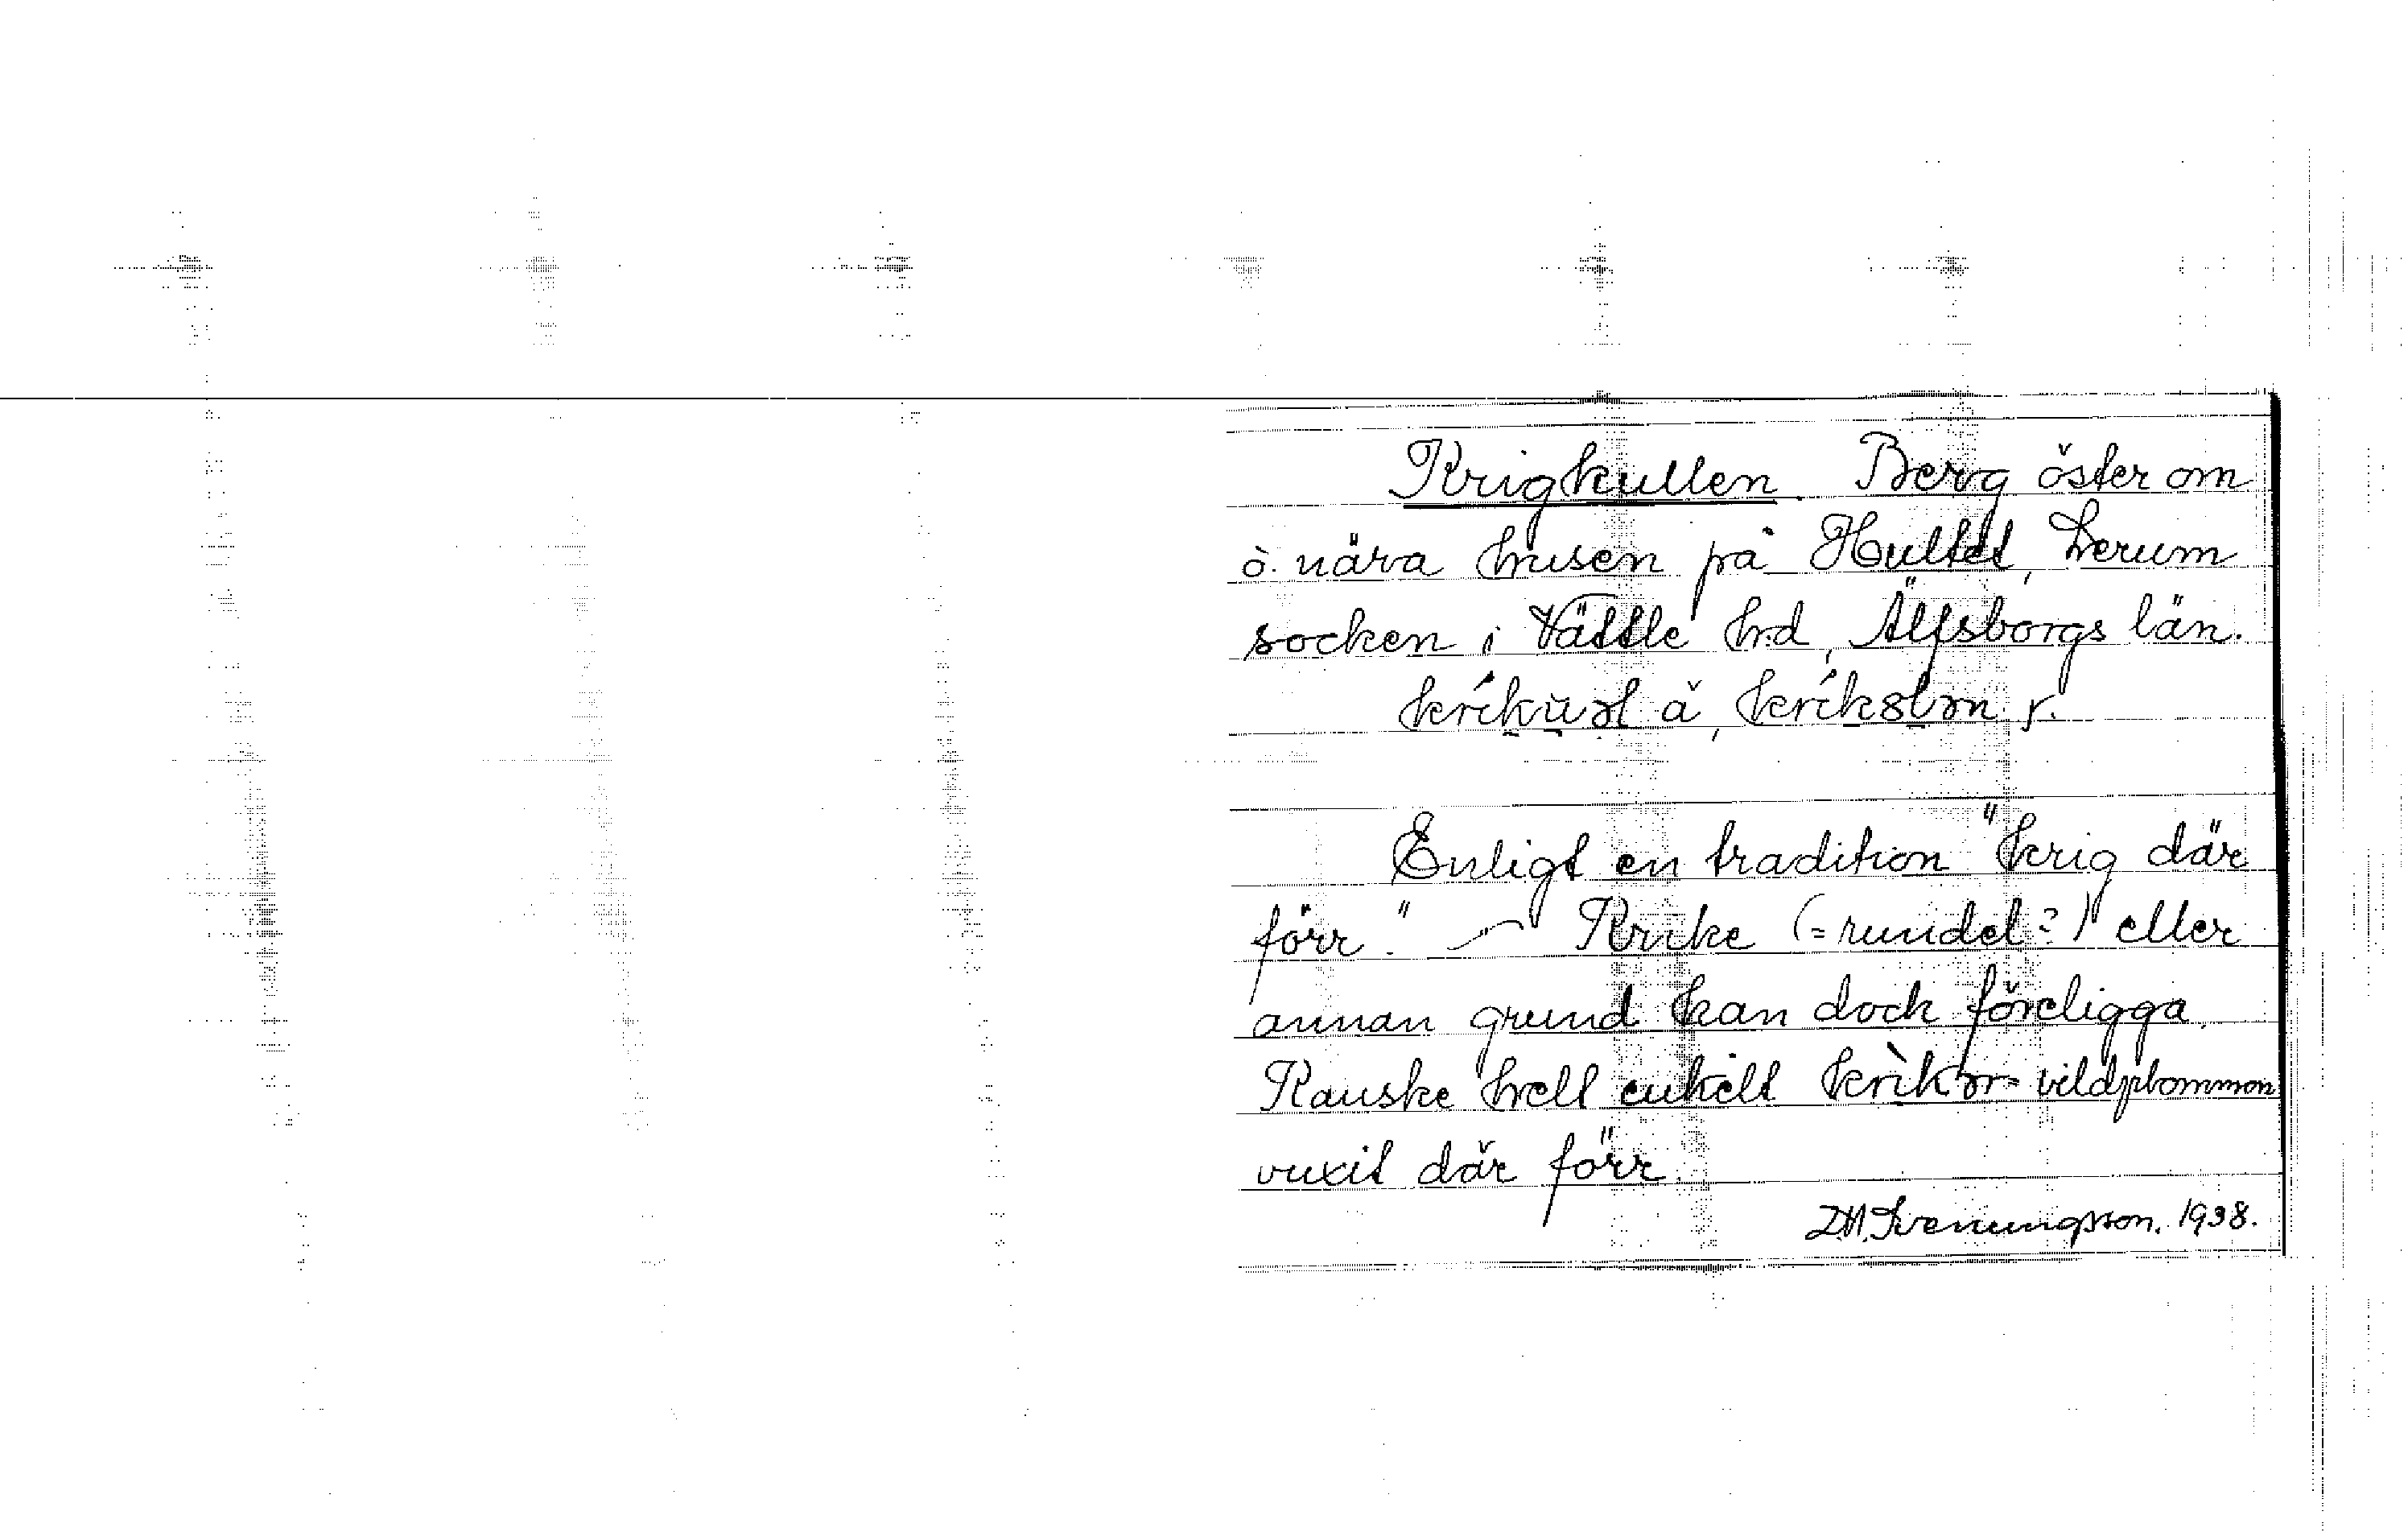 Krigkullen. Berg öster om
ò. nära husen på Hultet, Lerum
socken i Vättle hd, Älfsborgs län.
Enligt en tradition "krig där
förr." — Krike (= rundel?) eller
annan grund kan dock föreligga.
Kanske helt enkelt krikon vildplommon
vuxit där förr.
D.A. Svenungsson. 1938.